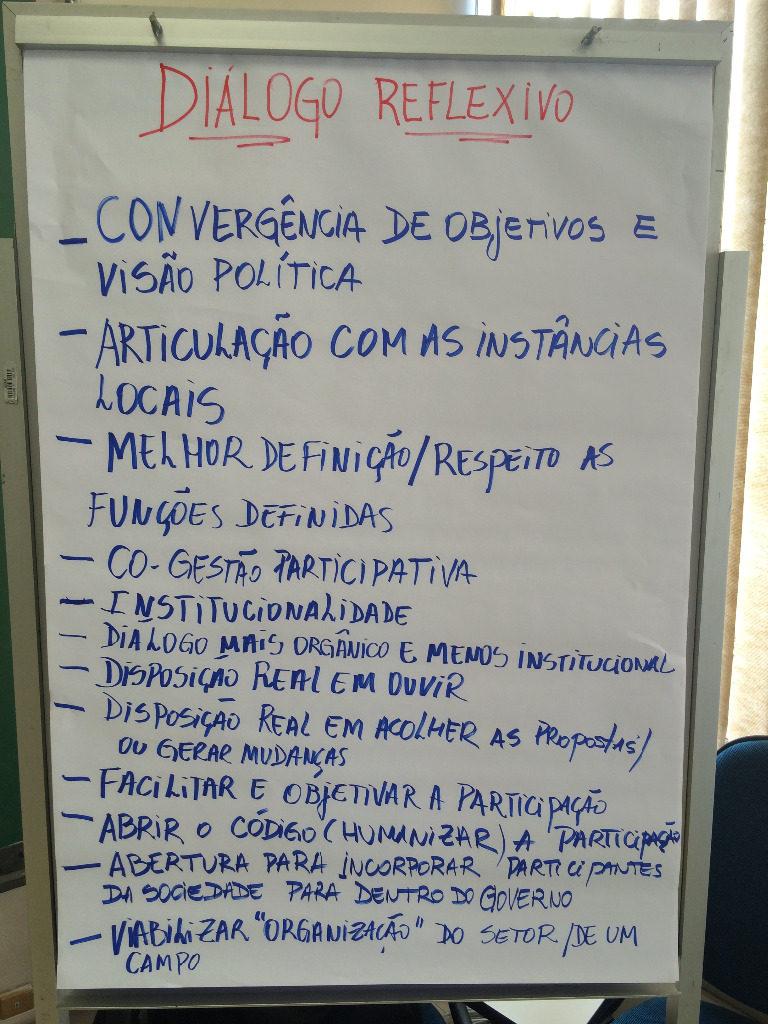 DIÁLOGO REFLEXIVO
– CONVERGÊNCIA DE OBJETIVOS E
VISÃO POLÍTICA
– ARTICULAÇÃO COM AS INSTÂNCIAS
LOCAIS
– MELHOR DEFINIÇÃO/RESPEITO AS
FUNÇÕES DEFINIDAS
– CO-GESTÃO PARTICIPATIVA
– INSTITUCIONALIDADE
– DIÁLOGO MAIS ORGÂNICO E MENOS INSTITUCIONAL
– DISPOSIÇÃO REAL EM OUVIR
– DISPOSIÇÃO REAL EM ACOLHER AS PROPOSTAS/
OU GERAR MUDANÇAS
– FACILITAR E OBJETIVAR A PARTICIPAÇÃO
– ABRIR O CÓDIGO (HUMANIZAR) A PARTICIPAÇÃO
– ABERTURA PARA INCORPORAR PARTICIPANTES
DA SOCIEDADE PARA DENTRO DO GOVERNO
– VIABILIZAR "ORGANIZAÇÃO" DO SETOR/DE UM
CAMPO